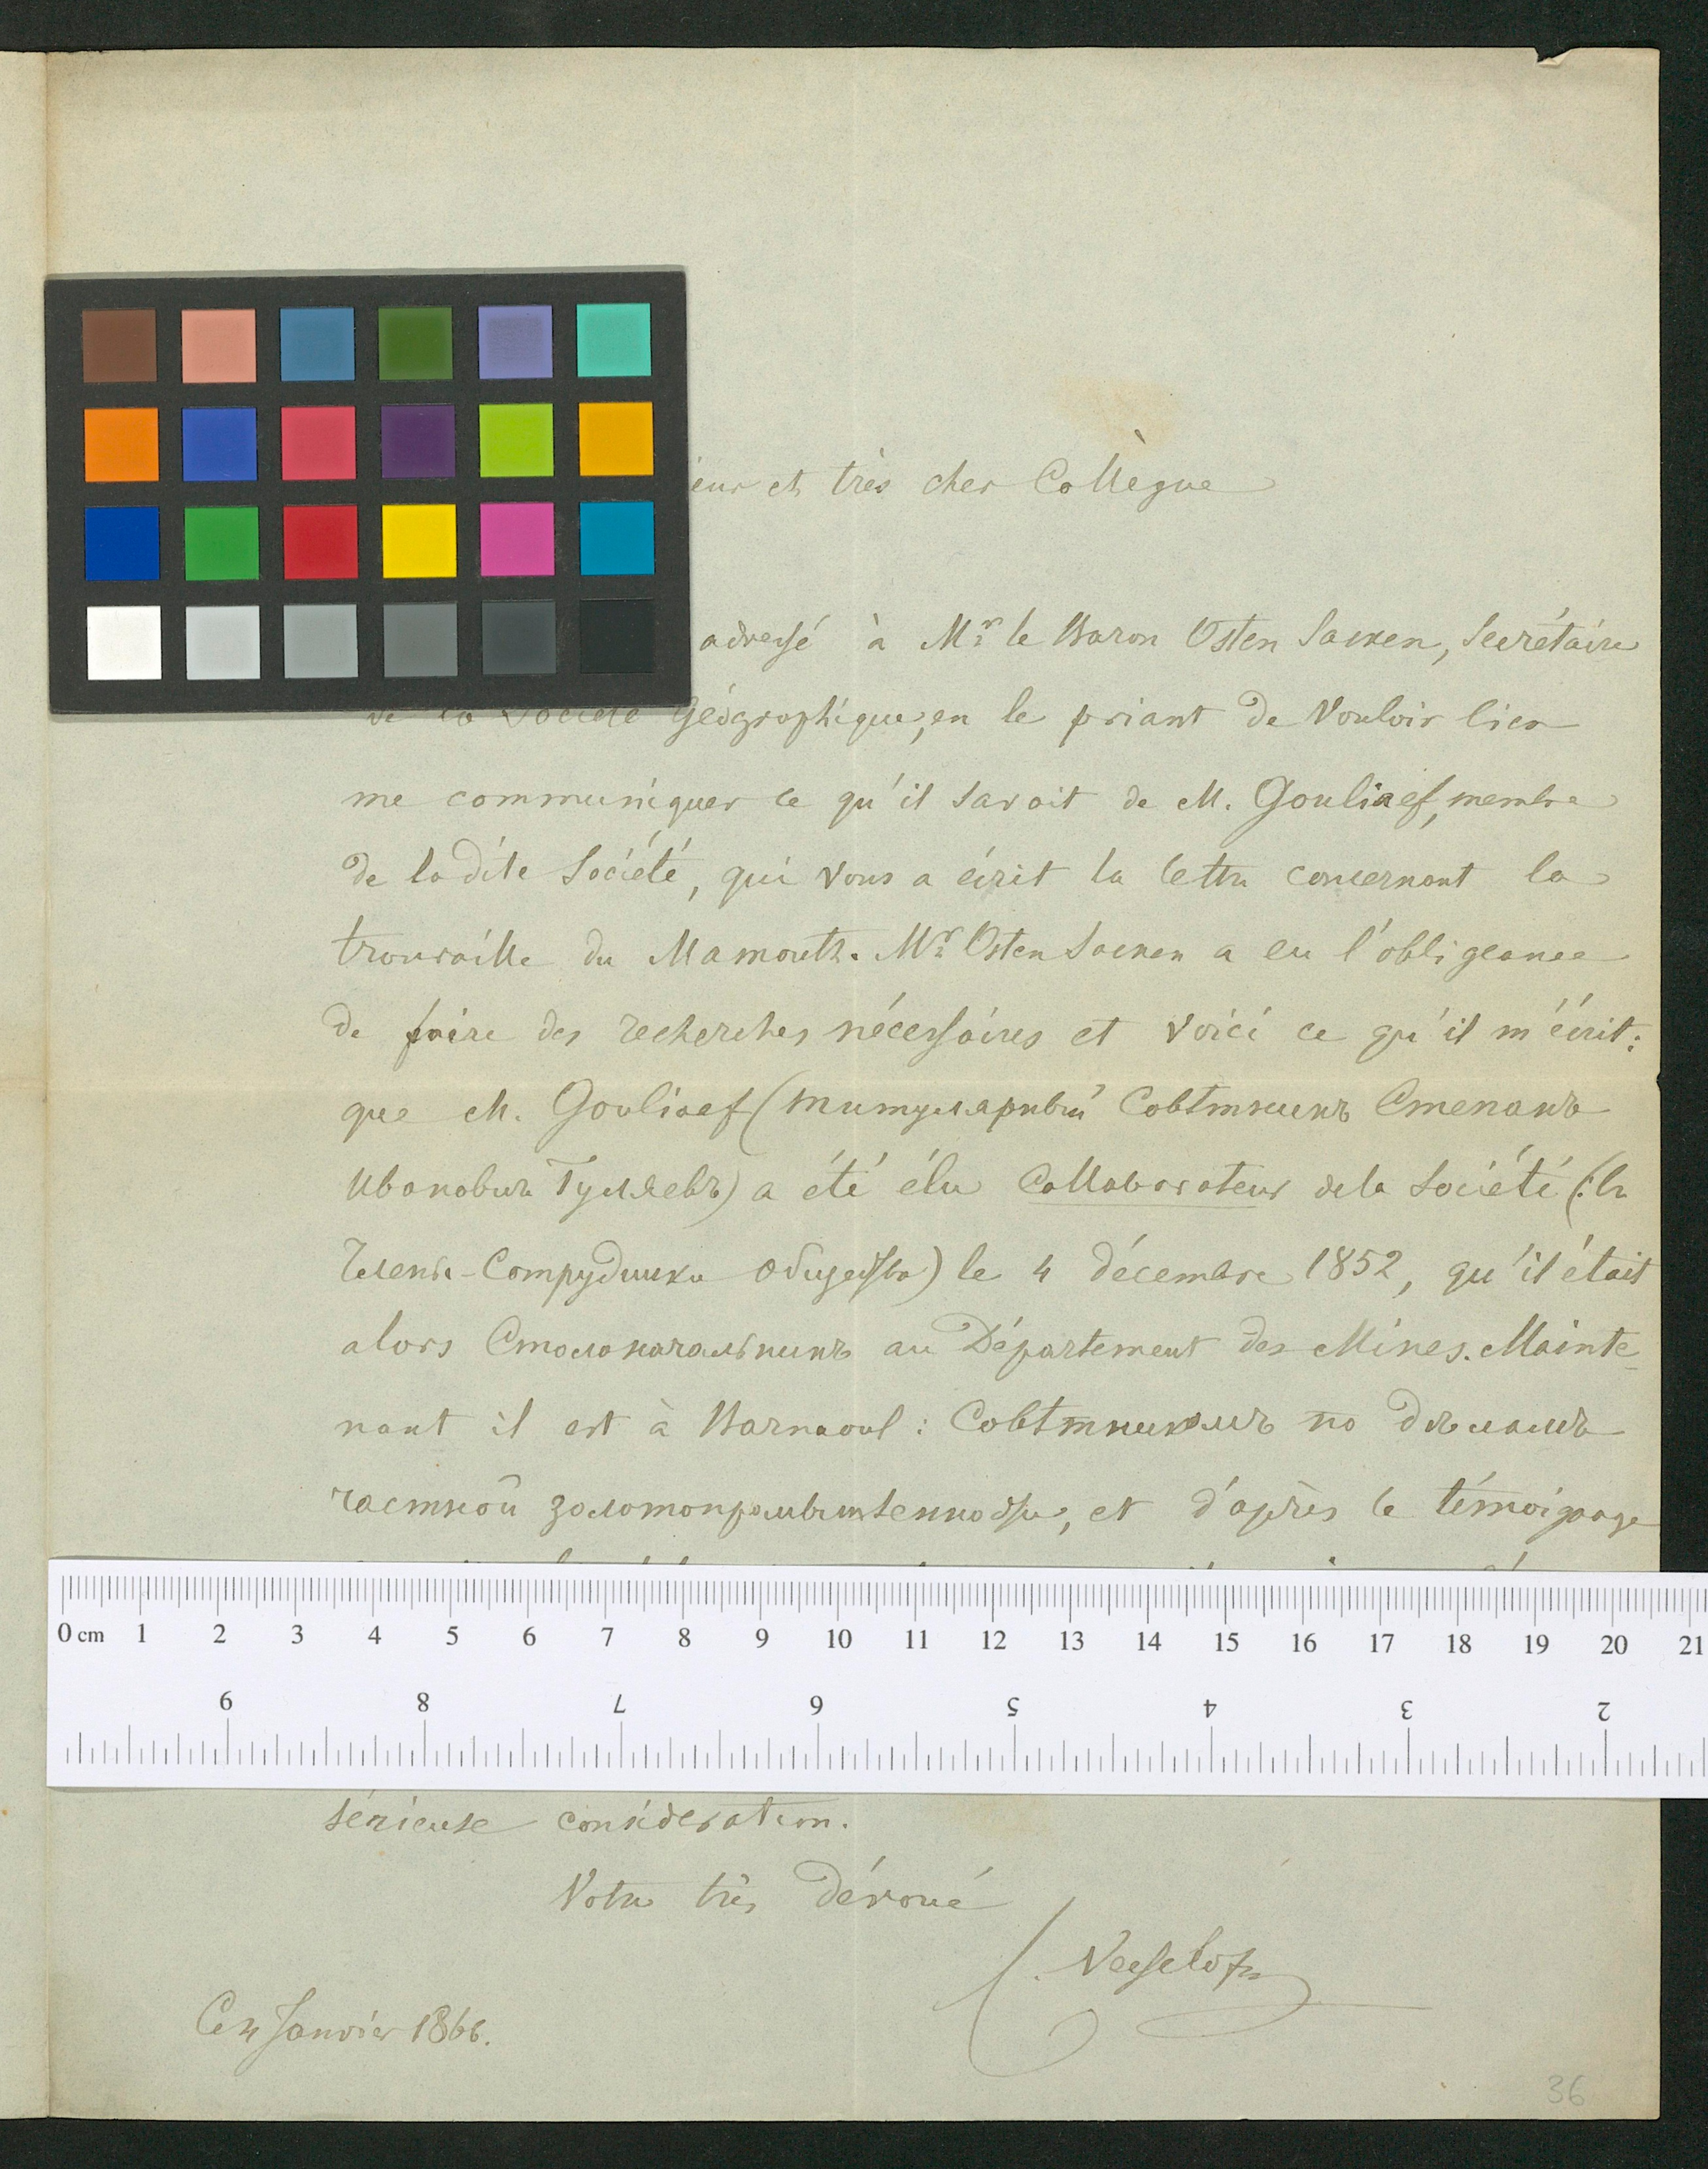 et très cher Collègue
adressé à Mr le Baron Osten Sacken, Secrétaire
de la Société Géographique, en le priant de Vouloir bien
me communiquer ce qu'il savait de M. Gouliaef, membre
de ladite Société, qui vous a écrit la lettre concernant la
trouvaille du Mamouth. Mr Osten Sacken a eu l'obligeance
de faire des recherches nécessaires et voici ce qu'il m'écrit:
que M. Gouliaef (титулярный Совѣтникъ Степанъ
Ивановичъ Гуляевъ) a été élu Collaborateur de la Société (въ
Члены-Сотрудники Общества) le 4 décembre 1852, qu'il était
alors Столоначальникъ au Département des Mines. Mainte-
nant il est à Barnaoul: Совѣтникомъ по дѣламъ
частной золотопромышленности, et d'après le témoignage
0 cm 1 2 3 4 5 6 7 8 9 10 11 12 13 14 15 16 17 18 19 20 21
9 8 7 6 5 4 3 2
sérieuse considération.
Votre très dévoué
C. Vesselofs
Ce 4 Janvier 1866.
36